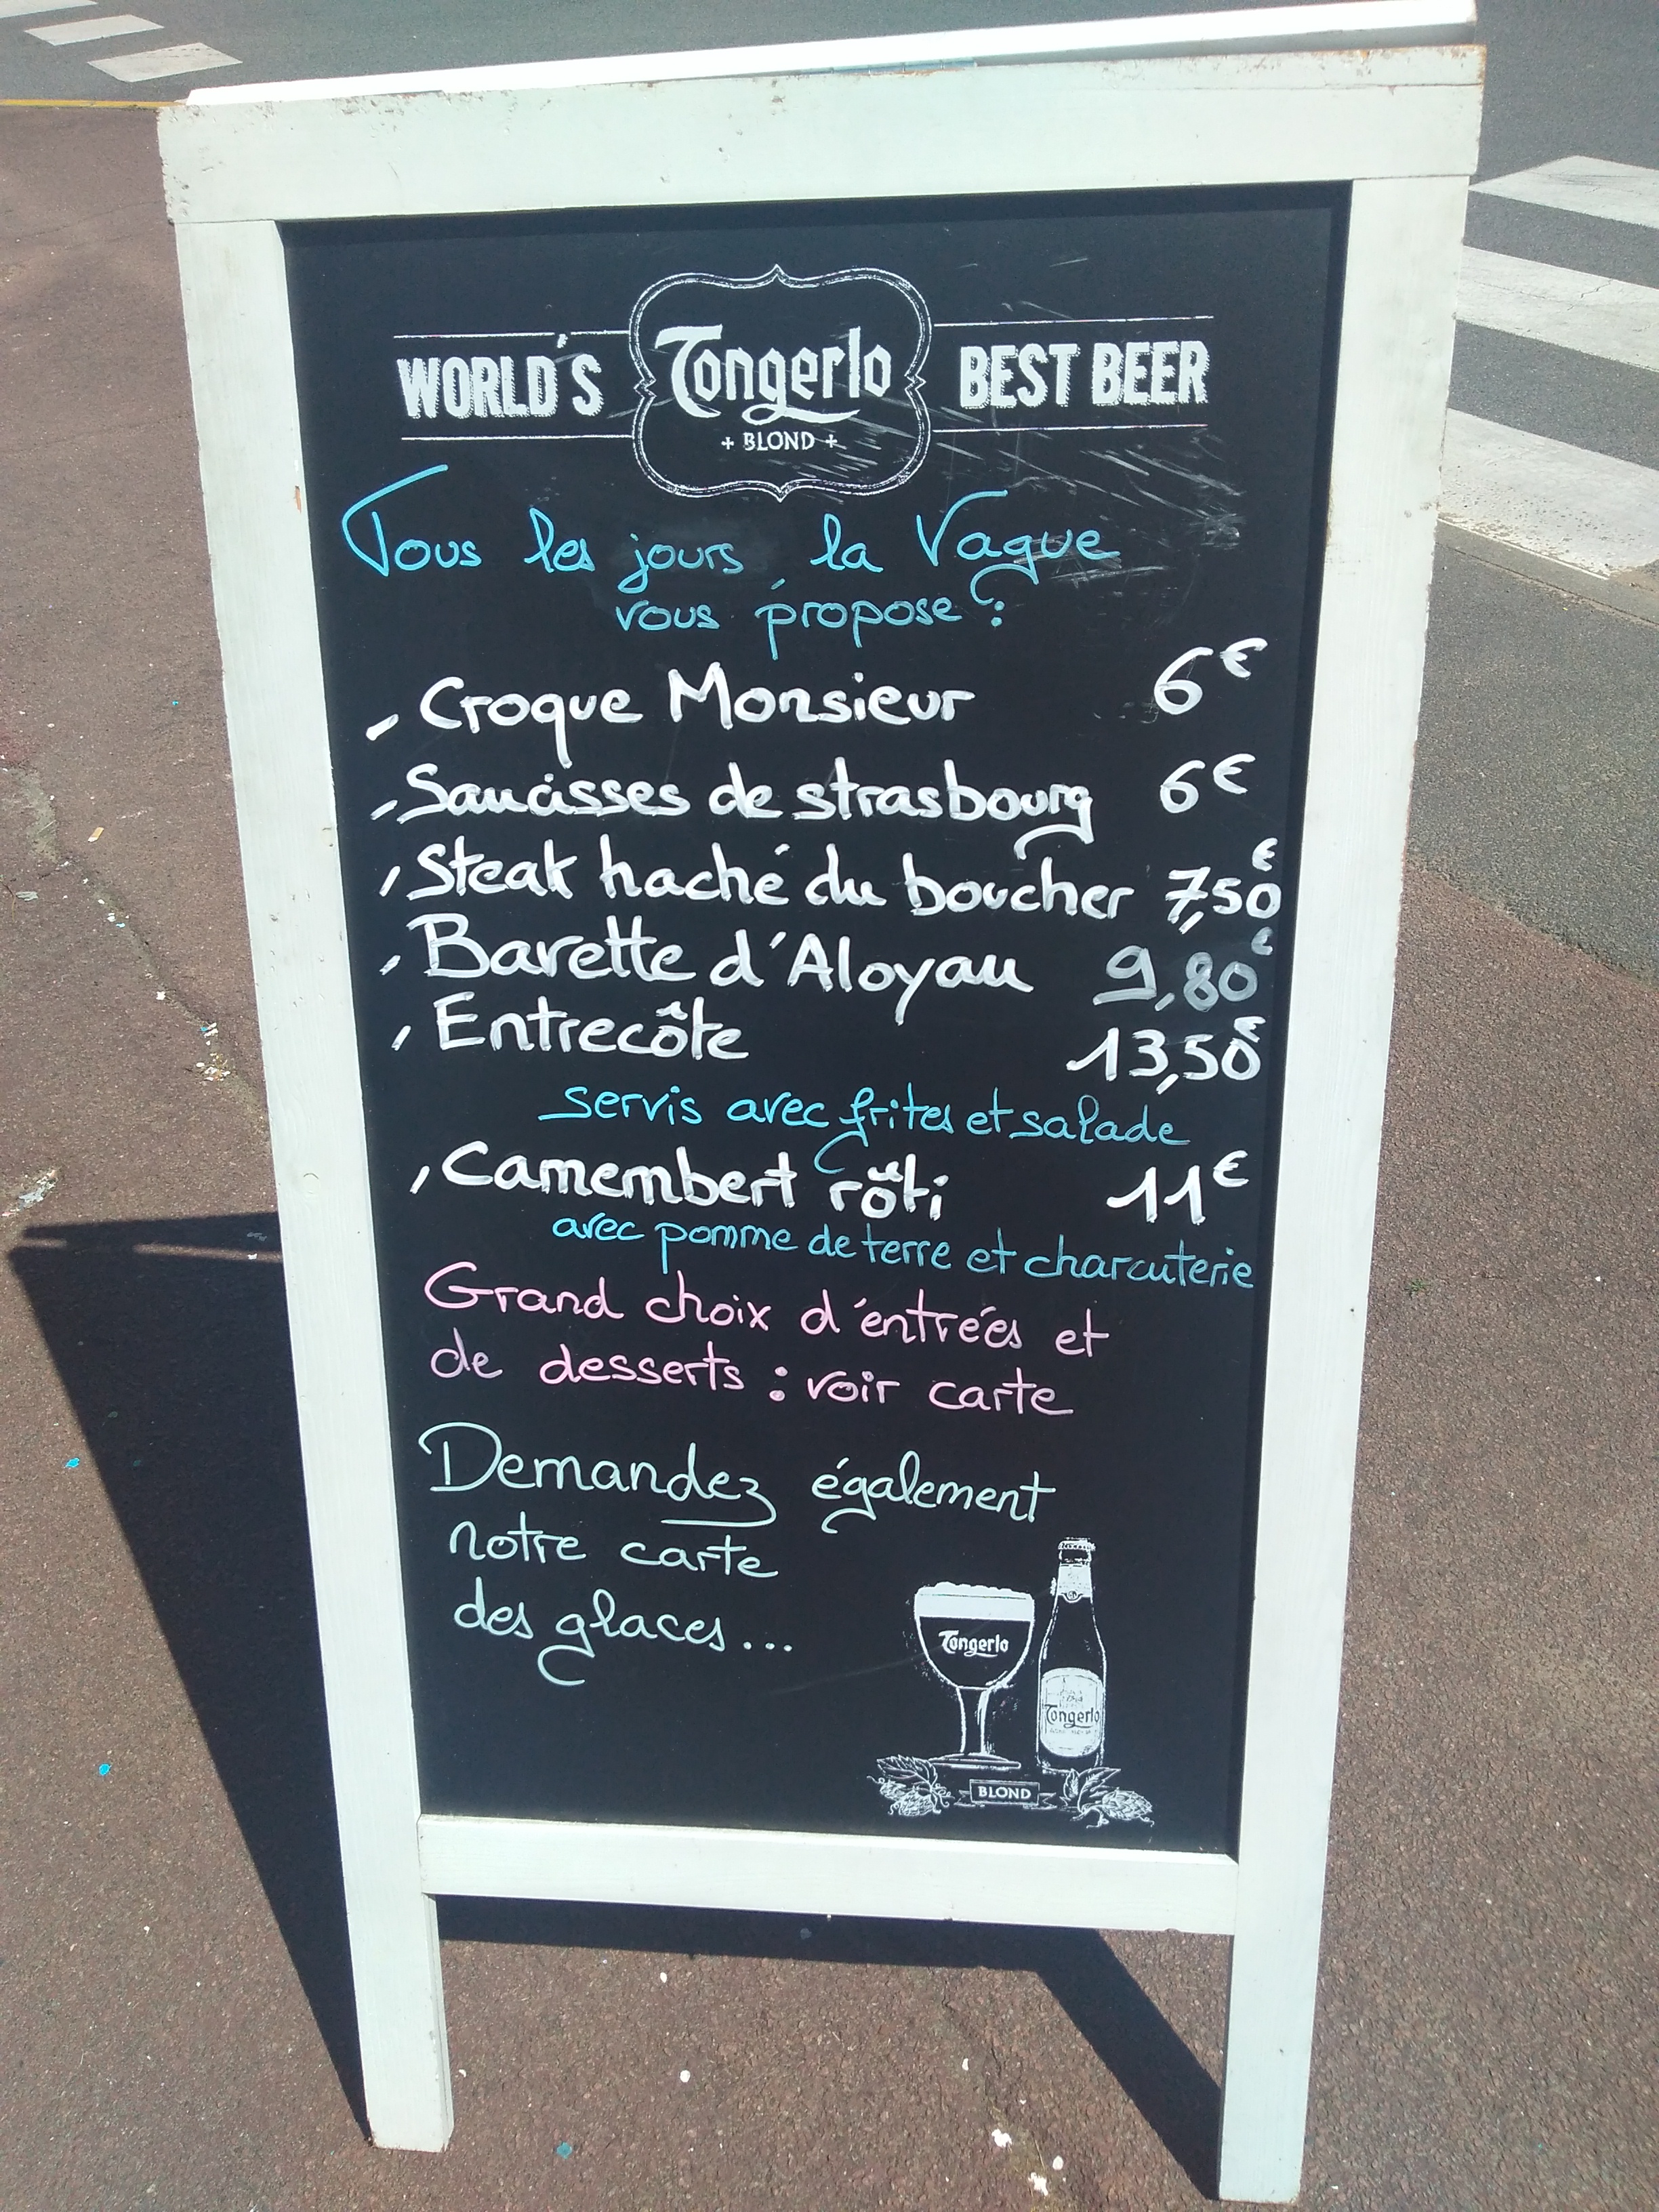 WORLD'S Tongerlo BEST BEER
+ BLOND +
Tous les jours, la Vague
vous propose :
- Croque Monsieur 6€
- Saucisses de strasbourg 6€
- Steak haché du boucher 7,50€
- Barette d'Aloyau 9,80€
- Entrecôte 13,50€
servis avec frites et salade
- Camembert rôti 11€
avec pomme de terre et charcuterie
Grand choix d'entrées et
de desserts : voir carte
Demandez également
notre carte
des glaces...
Tongerlo
Tongerlo
BLOND